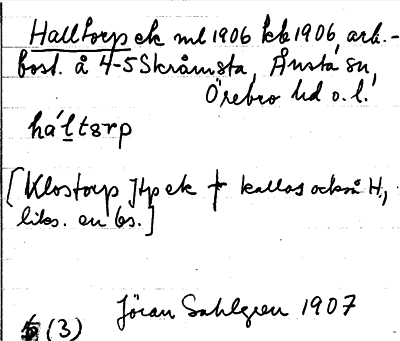 Halltorp ek ml 1906 kb 1906, arb.-
bost. å 4-5 Skråmsta, Ånsta sn,
Örebro hd o. l.
há'ltɜrp
[Klostorp Jtp ek † kallas också H.,
liks. en bs.]
Jöran Sahlgren 1907
(3)